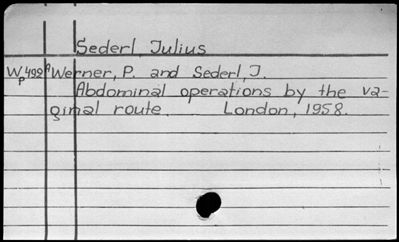 Sederl, Julius
Wp 492A Werner, P. and Sederl, J.
Abdominal operations by the va-
ginal route. London, 1958.